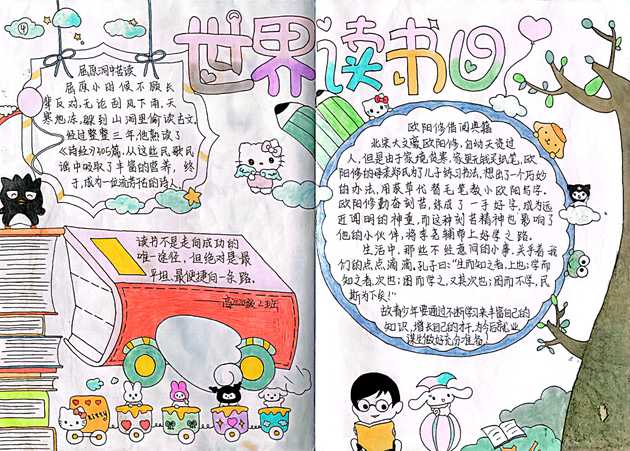 4
世界读书日
屈原洞中苦读
屈原小时候不顾长
辈反对,无论刮风下雨,天
寒地冻,躲到山洞里偷读古文,
经过整整三年他熟读了
《诗经》305篇,从这些民歌民
谣中吸取了丰富的营养,终
于,成为一位流芳百世的诗人。
读书不是走向成功的
唯一途径,但绝对是最
平坦、最便捷的一条路。
班
kitty
欧阳修借阅典籍
北宋大文豪欧阳修,自幼天资过
人,但是由于家境贫寒,家里无钱买纸笔,欧
阳修的母亲郑氏为了儿子练习书法,想出了一个巧妙
的办法,用荻草代替毛笔教小欧阳写字。
欧阳修勤奋刻苦,练成了一手好字,成为远
近闻明的神童,而这种刻苦精神也影响了
他的小伙伴,将李名辅带上好学之路。
生活中,那些不经意间的小事,关乎着我
们的点点滴滴,孔子曰:"生而知之者,上也;学而
知之者,次也;困而学之,又其次也;困而不学,民
斯为下矣!"
故青少年要通过不断学习来丰富自己的
知识,增长自己的才干,为今后就业
谋生做好充分准备!